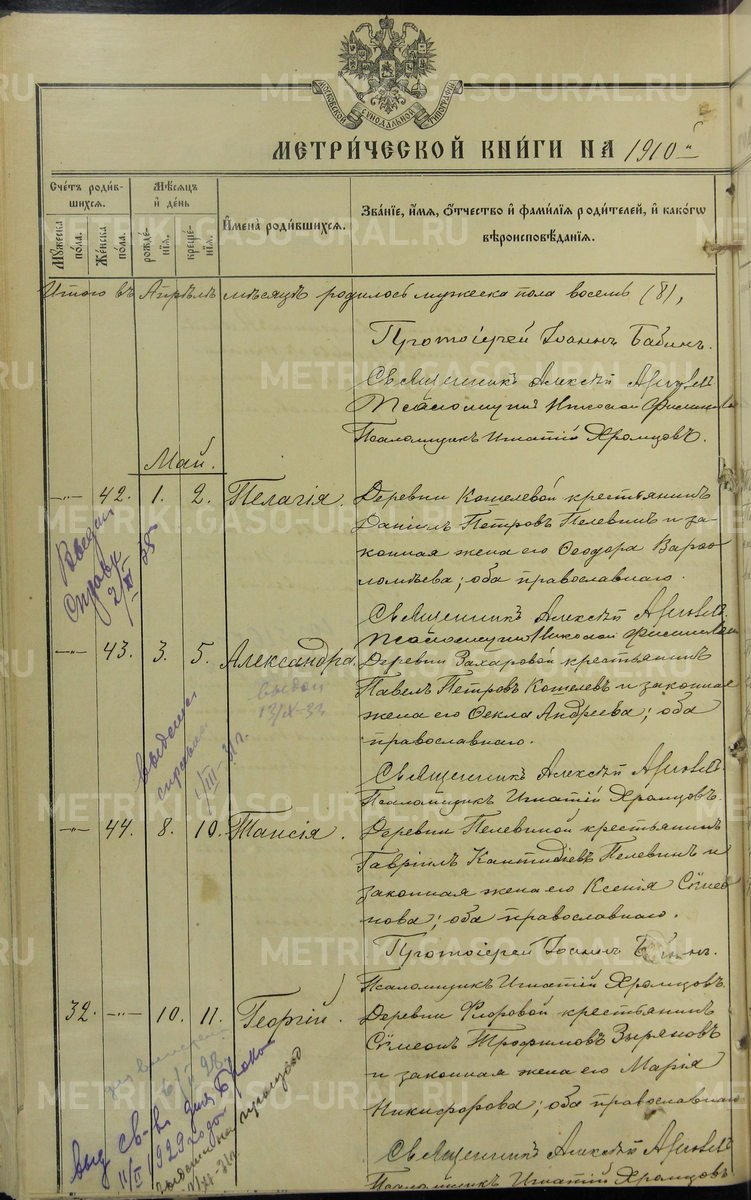 МОСКОВСКОЙ СѴНОДАЛЬНОЙ ТИПОГРАФІИ
МЕТРИ́ЧЕСКОЙ КНИ́ГИ НА 1910 й
Счётъ роди́вшихся.
Мꙋ́жеска по́ла.
Же́нска по́ла.
Мѣ́сѧцъ и҆ де́нь
рожде́нїѧ.
креще́нїѧ.
И҆мена̀ роди́вшихсѧ.
Зва́нїе, и҆́мѧ, ѻ҆́тчество и҆ фами́лїѧ роди́телей, и҆ како́гѡ
вѣроисповѣ́данїѧ.
Итого въ Апрѣлѣ мѣсяцѣ родилось мужеска пола восемь (8),
Протоіерей Іоаннъ Бабинъ.
Священникъ Алексѣй
Псаломщикъ Николай
Псаломщикъ Игнатій Хромцовъ.
Май.
-„- 42. 1. 2. Пелагія. Деревни Кошелевой крестьянинъ
Даніилъ Петровъ Пелевинъ и за-
конная жена его Ѳеодора Варѳо
ломѣева; оба православнаго.
Священникъ Алексѣй
Псаломщикъ Николай
-„- 43. 3. 5. Александра. Деревни Захаровой крестьянинъ
Павелъ Петровъ Кошелевъ и законная
жена его Ѳекла Андреева; оба
православнаго.
Священникъ Алексѣй
Псаломщикъ Игнатій Хромцовъ.
-„- 44. 8. 10. Таисія. Деревни Пелевиной крестьянинъ
Гавріилъ Кантидіевъ Пелевинъ и
законная жена его Ксенія Сѵмео
нова; оба православнаго.
Протоіерей Іоаннъ Бабинъ.
Псаломщикъ Игнатій Хромцовъ.
32. -„- 10. 11. Георгій. Деревни Флоровой крестьянинъ
Сѵмеонъ Трофимовъ Зыряновъ
и законная жена его Марія
Никифорова; оба православнаго
Священникъ Алексѣй
Псаломщикъ Игнатій Хромцовъ
справку
2/XI 28
13/X-33
справка
1/III-31 г.
выд св-во для брака
11/II 1929 года
METRIKI.GASO-URAL.RU